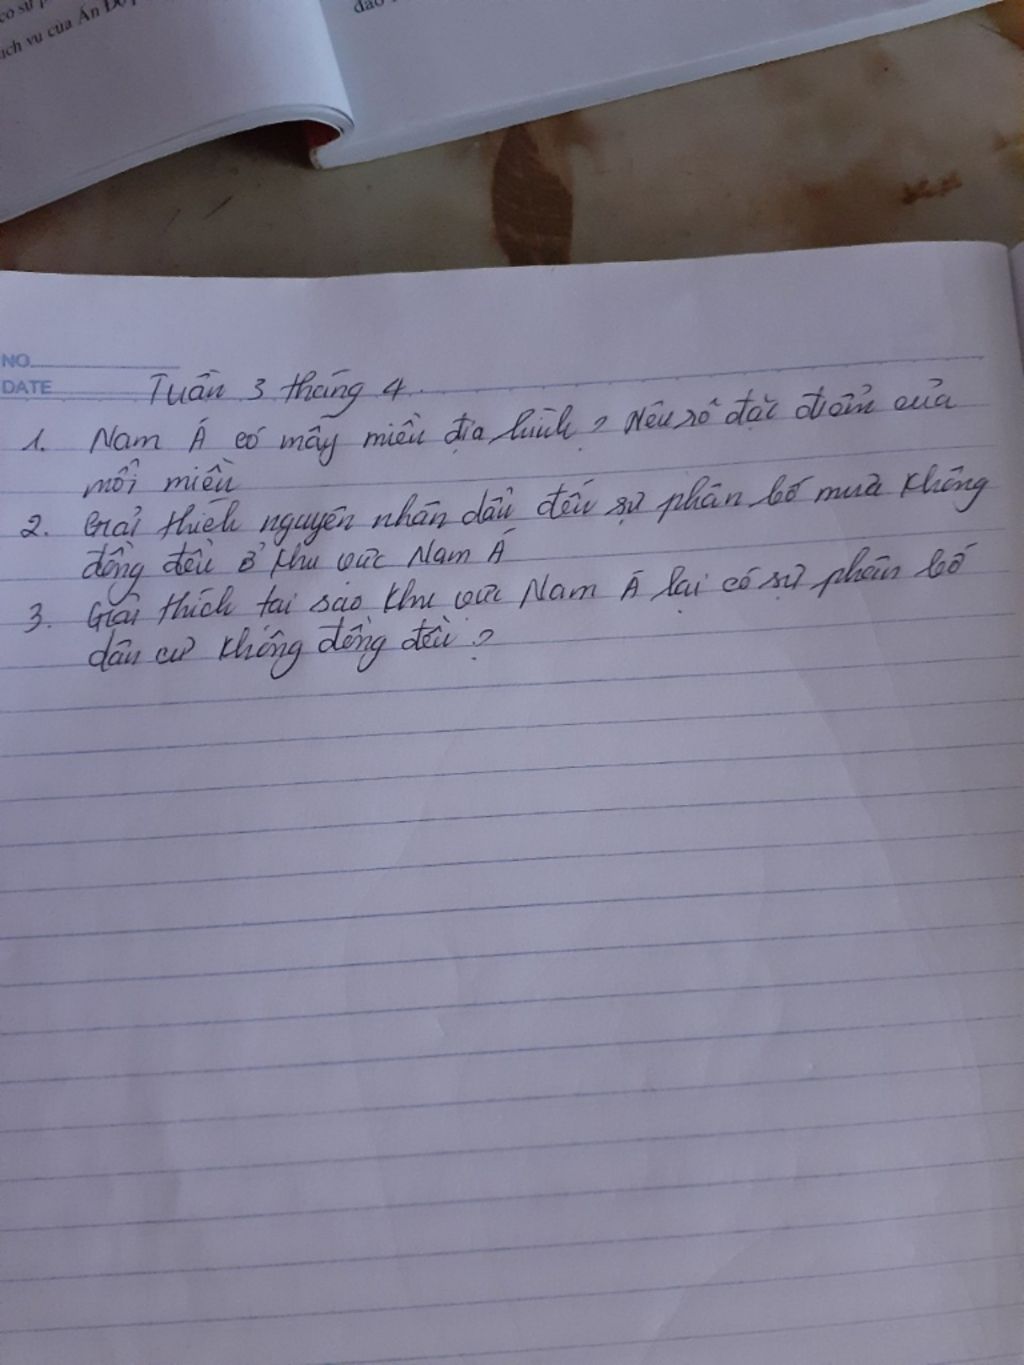 có sự p
ịch vụ của Ấn Độ
đảo
NO
DATE
Tuần 3 tháng 4
1. Nam Á có mấy miền địa hình? Nêu rõ đặc điểm của
mỗi miền
2. Giải thích nguyên nhân dẫn đến sự phân bố mưa không
đồng đều ở khu vực Nam Á
3. Giải thích tại sao khu vực Nam Á lại có sự phân bố
dân cư không đồng đều?